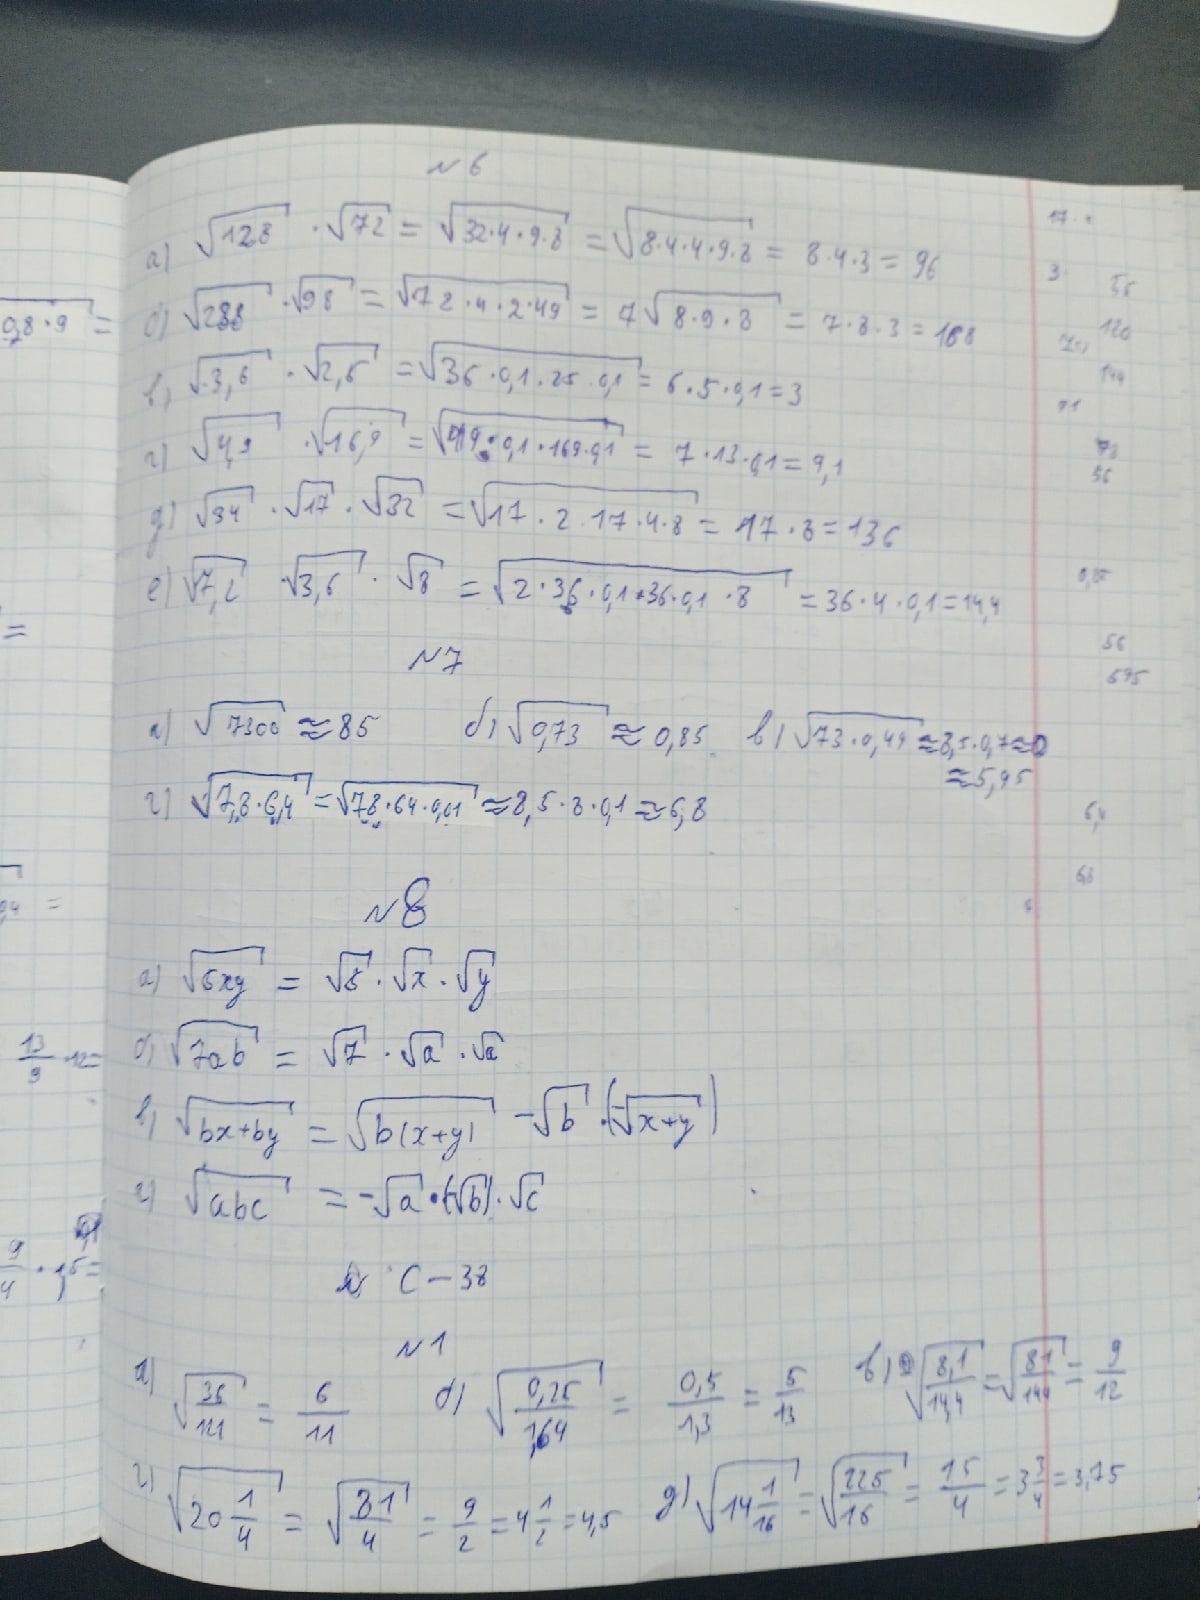 №6
а) √128 · √72 = √32·4·9·8 = √8·4·4·9·8 = 8·4·3 = 96
б) √288 · √98 = √72·4·2·49 = 7√8·9·8 = 7·8·3 = 168
в) √3,6 · √2,5 = √36·0,1·25·0,1 = 6·5·0,1 = 3
г) √4,9 · √16,9 = √49·0,1·169·0,1 = 7·13·0,1 = 9,1
д) √34 · √17 · √32 = √17·2·17·4·8 = 17·8 = 136
е) √7,2 · √3,6 · √8 = √2·36·0,1·36·0,1·8 = 36·4·0,1 = 14,4
№7
а) √7300 ≈ 85 б) √0,73 ≈ 0,85 в) √73·0,49 ≈ 8,5·0,7 ≈
≈ 5,95
г) √7,3·6,4 = √73·64·0,01 ≈ 8,5·8·0,1 ≈ 6,8
№8
а) √5xy = √5 · √x · √y
б) √7ab = √7 · √a · √a
в) √bx+by = √b(x+y) -√b · (-√x+y)
г) √abc = -√a · (-√b) · √c
С – 38
№1
а) √36/121 = 6/11 б) √0,25/1,64 = 0,5/1,3 = 5/13 в) √8,1/14,4 = √81/144 = 9/12
г) √20 1/4 = √81/4 = 9/2 = 4 1/2 = 4,5 д) √14 1/16 = √225/16 = 15/4 = 3 3/4 = 3,75
0,8·9 =
=
13/9 · 12 =
9/4 · 1,5 =
120
144
71
56
56
595
6,4